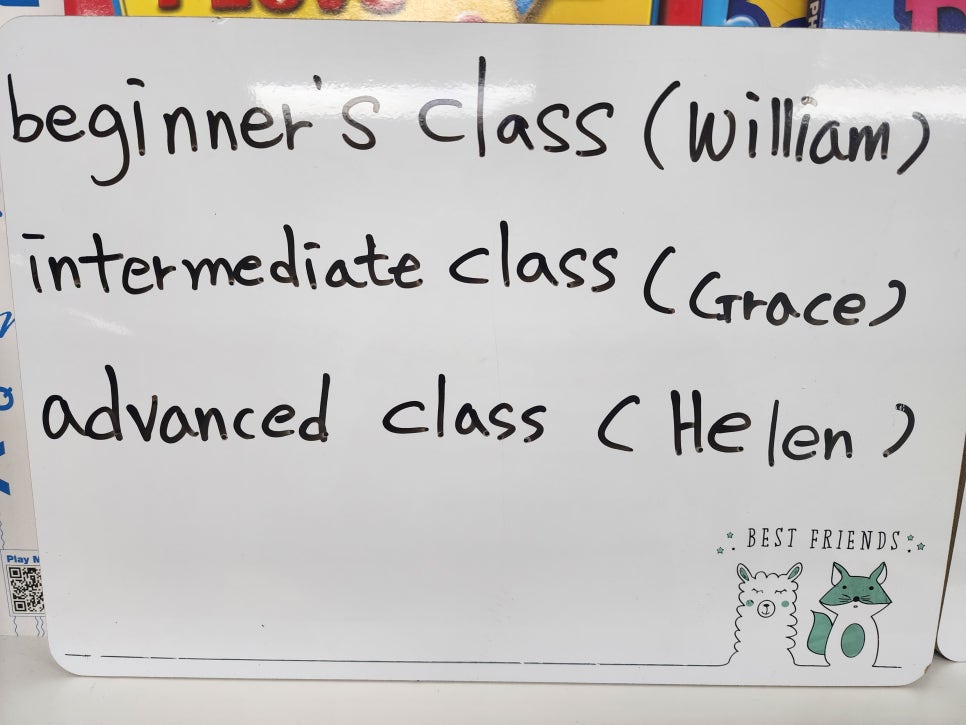 beginner's class (William)
intermediate class (Grace)
advanced class (Helen)
BEST FRIENDS
Play